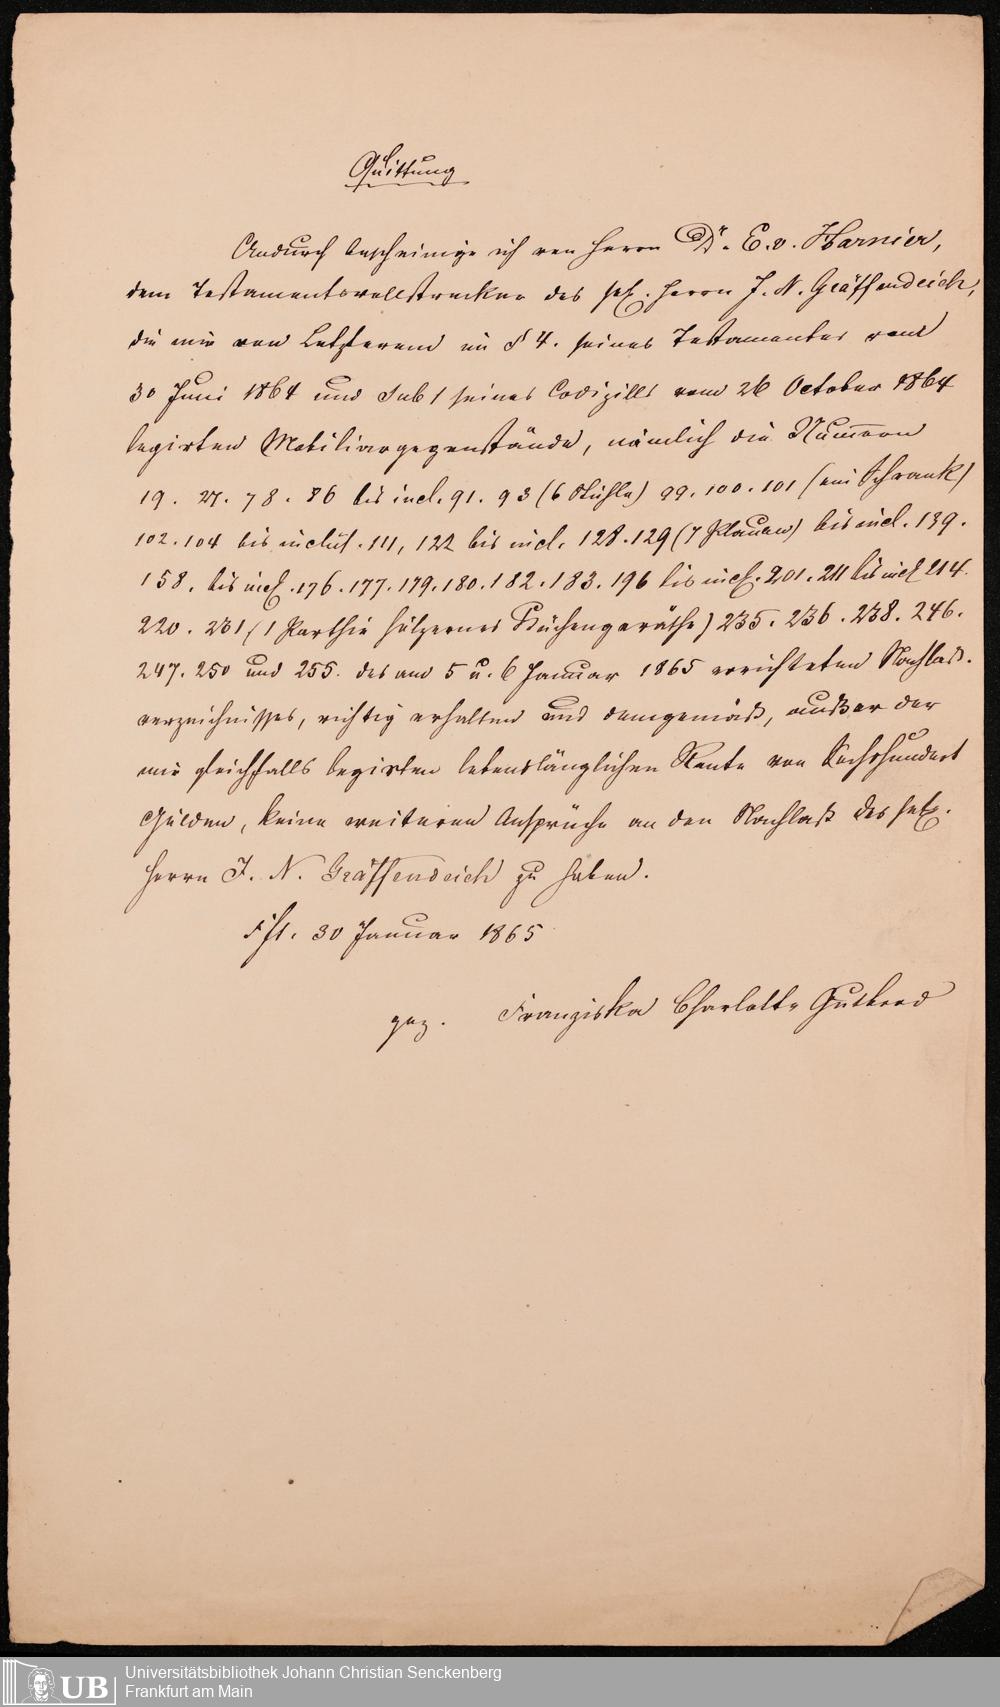 Quittung
Andurch bescheinige ich von Herrn Dr. E. v. Harnier,
dem Testamentsvollstrecker des sel. Herrn J. N. Gräffendeich,
die mir von Letzterem in § 4. seines Testamentes vom
30 Juni 1864 und sub 1 seines Codizills vom 26 October 1864
legirten Mobiliargegenstände, nämlich die Nummern
19. 27. 78. 86 bis incl. 91. 93 (6 Stühle) 99. 100. 101 (ein Schrank)
102. 104 bis inclus. 111, 122 bis incl. 128. 129 (7 Plauen) bis incl. 139.
158. bis incl. 176. 177. 179. 180. 182. 183. 196 bis incl. 201. 211 bis incl 214.
220. 231 (1 Parthie hölzernes Küchengeräthe) 235. 236. 238. 246.
247. 250 und 255. des am 5 u. 6 Januar 1865 errichteten Nachlaß-
verzeichnisses, richtig erhalten und demgemäß, außer der
mir gleichfalls legirten lebenslänglichen Rente von Sechshundert
Gulden, keine weiteren Ansprüche an den Nachlaß des sel.
Herrn J. N. Gräffendeich zu haben.
Fft. 30 Januar 1865
gez. Franziska Charlotte Gutbrod
UB
Universitätsbibliothek Johann Christian Senckenberg
Frankfurt am Main